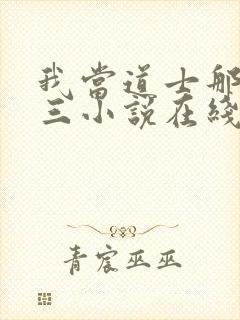 我當道士那
三小說在綫
青宸巫巫